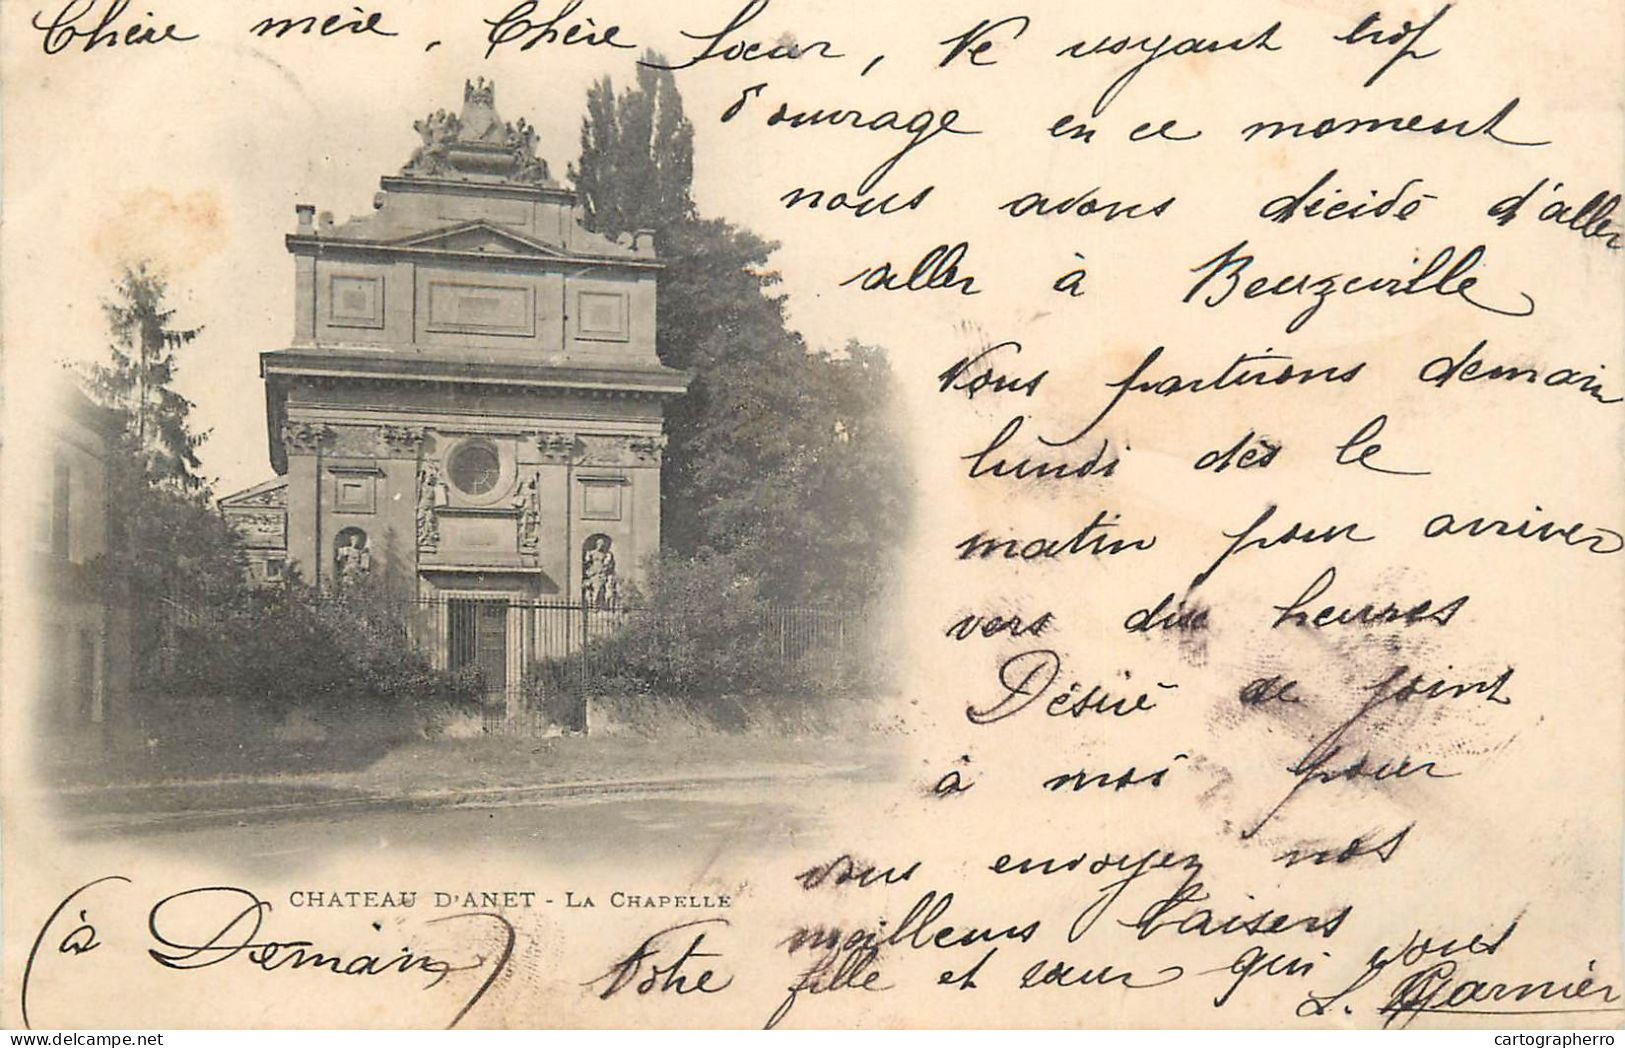 Chère mère, Chère Soeur, Ne voyant trop
d'ouvrage en ce moment
nous avons décidé d'aller
aller à Beuzeville
Nous partirons demain
lundi dès le
matin pour arriver
vers dix heures
Désiré se joint
à moi pour
vous envoyez nos
meilleurs baisers
Votre fille et sœur qui vous
L. Garnier
(à Demain)
CHATEAU D'ANET - LA CHAPELLE
cartographerro